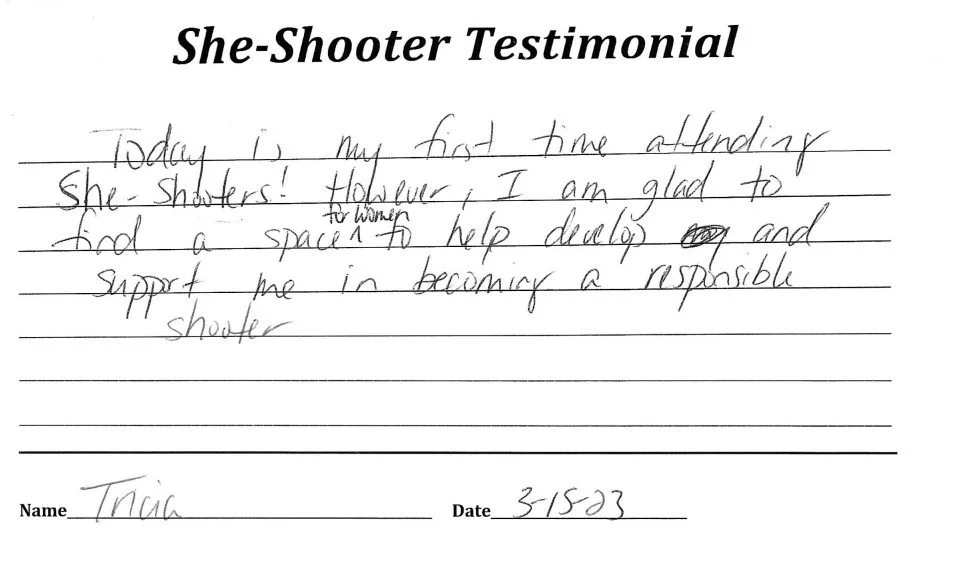 She-Shooter Testimonial
Today is my first time attending
She-Shooters! However, I am glad to
for women
find a space ^ to help develop and
support me in becoming a responsible
shooter
Name Tricia Date 3-15-23